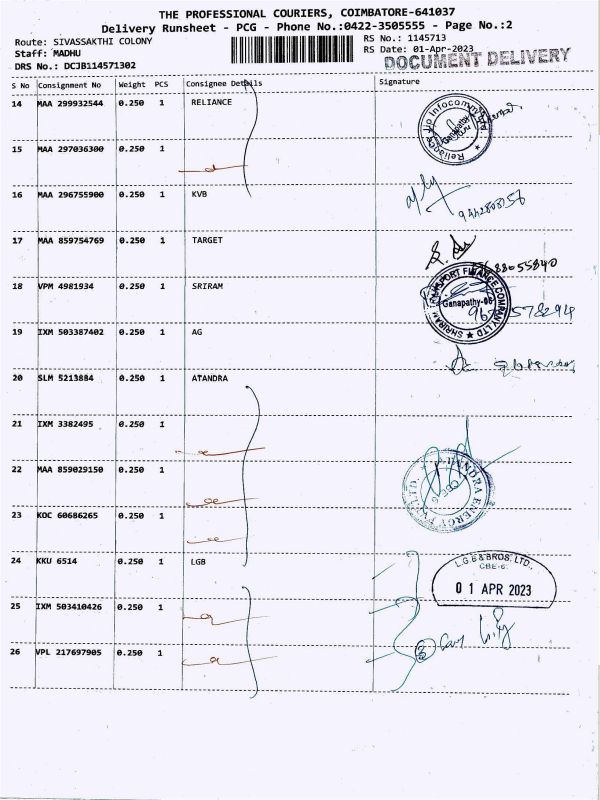 THE PROFESSIONAL COURIERS, COIMBATORE-641037
Delivery Runsheet - PCG - Phone No.:0422-3505555 - Page No.:2
Route: SIVASSAKTHI COLONY
RS No.: 1145713
Staff: MADHU
RS Date: 01-Apr-2023
DRS No.: DCJB114571302
DOCUMENT DELIVERY
S No Consignment No Weight PCS Consignee Details Signature
14 MAA 299932544 0.250 1 RELIANCE
Reliance Jio Infocomm
Ganapathy
15 MAA 297036300 0.250 1
16 MAA 296755900 0.250 1 KVB
17 MAA 859754769 0.250 1 TARGET
18 VPM 4981934 0.250 1 SRIRAM
SHRIRAM TRANSPORT FINANCE COMPANY LTD
Ganapathy-06
19 IXM 503387402 0.250 1 AG
20 SLM 5213884 0.250 1 ATANDRA
21 IXM 3382495 0.250 1
22 MAA 859029150 0.250 1
ATANDRA ENERGY
CBE-6
23 KOC 60686265 0.250 1
24 KKU 6514 0.250 1 LGB
L.G.B & BROS. LTD.,
CBE-6.
0 1 APR 2023
25 IXM 503410426 0.250 1
26 VPL 217697905 0.250 1